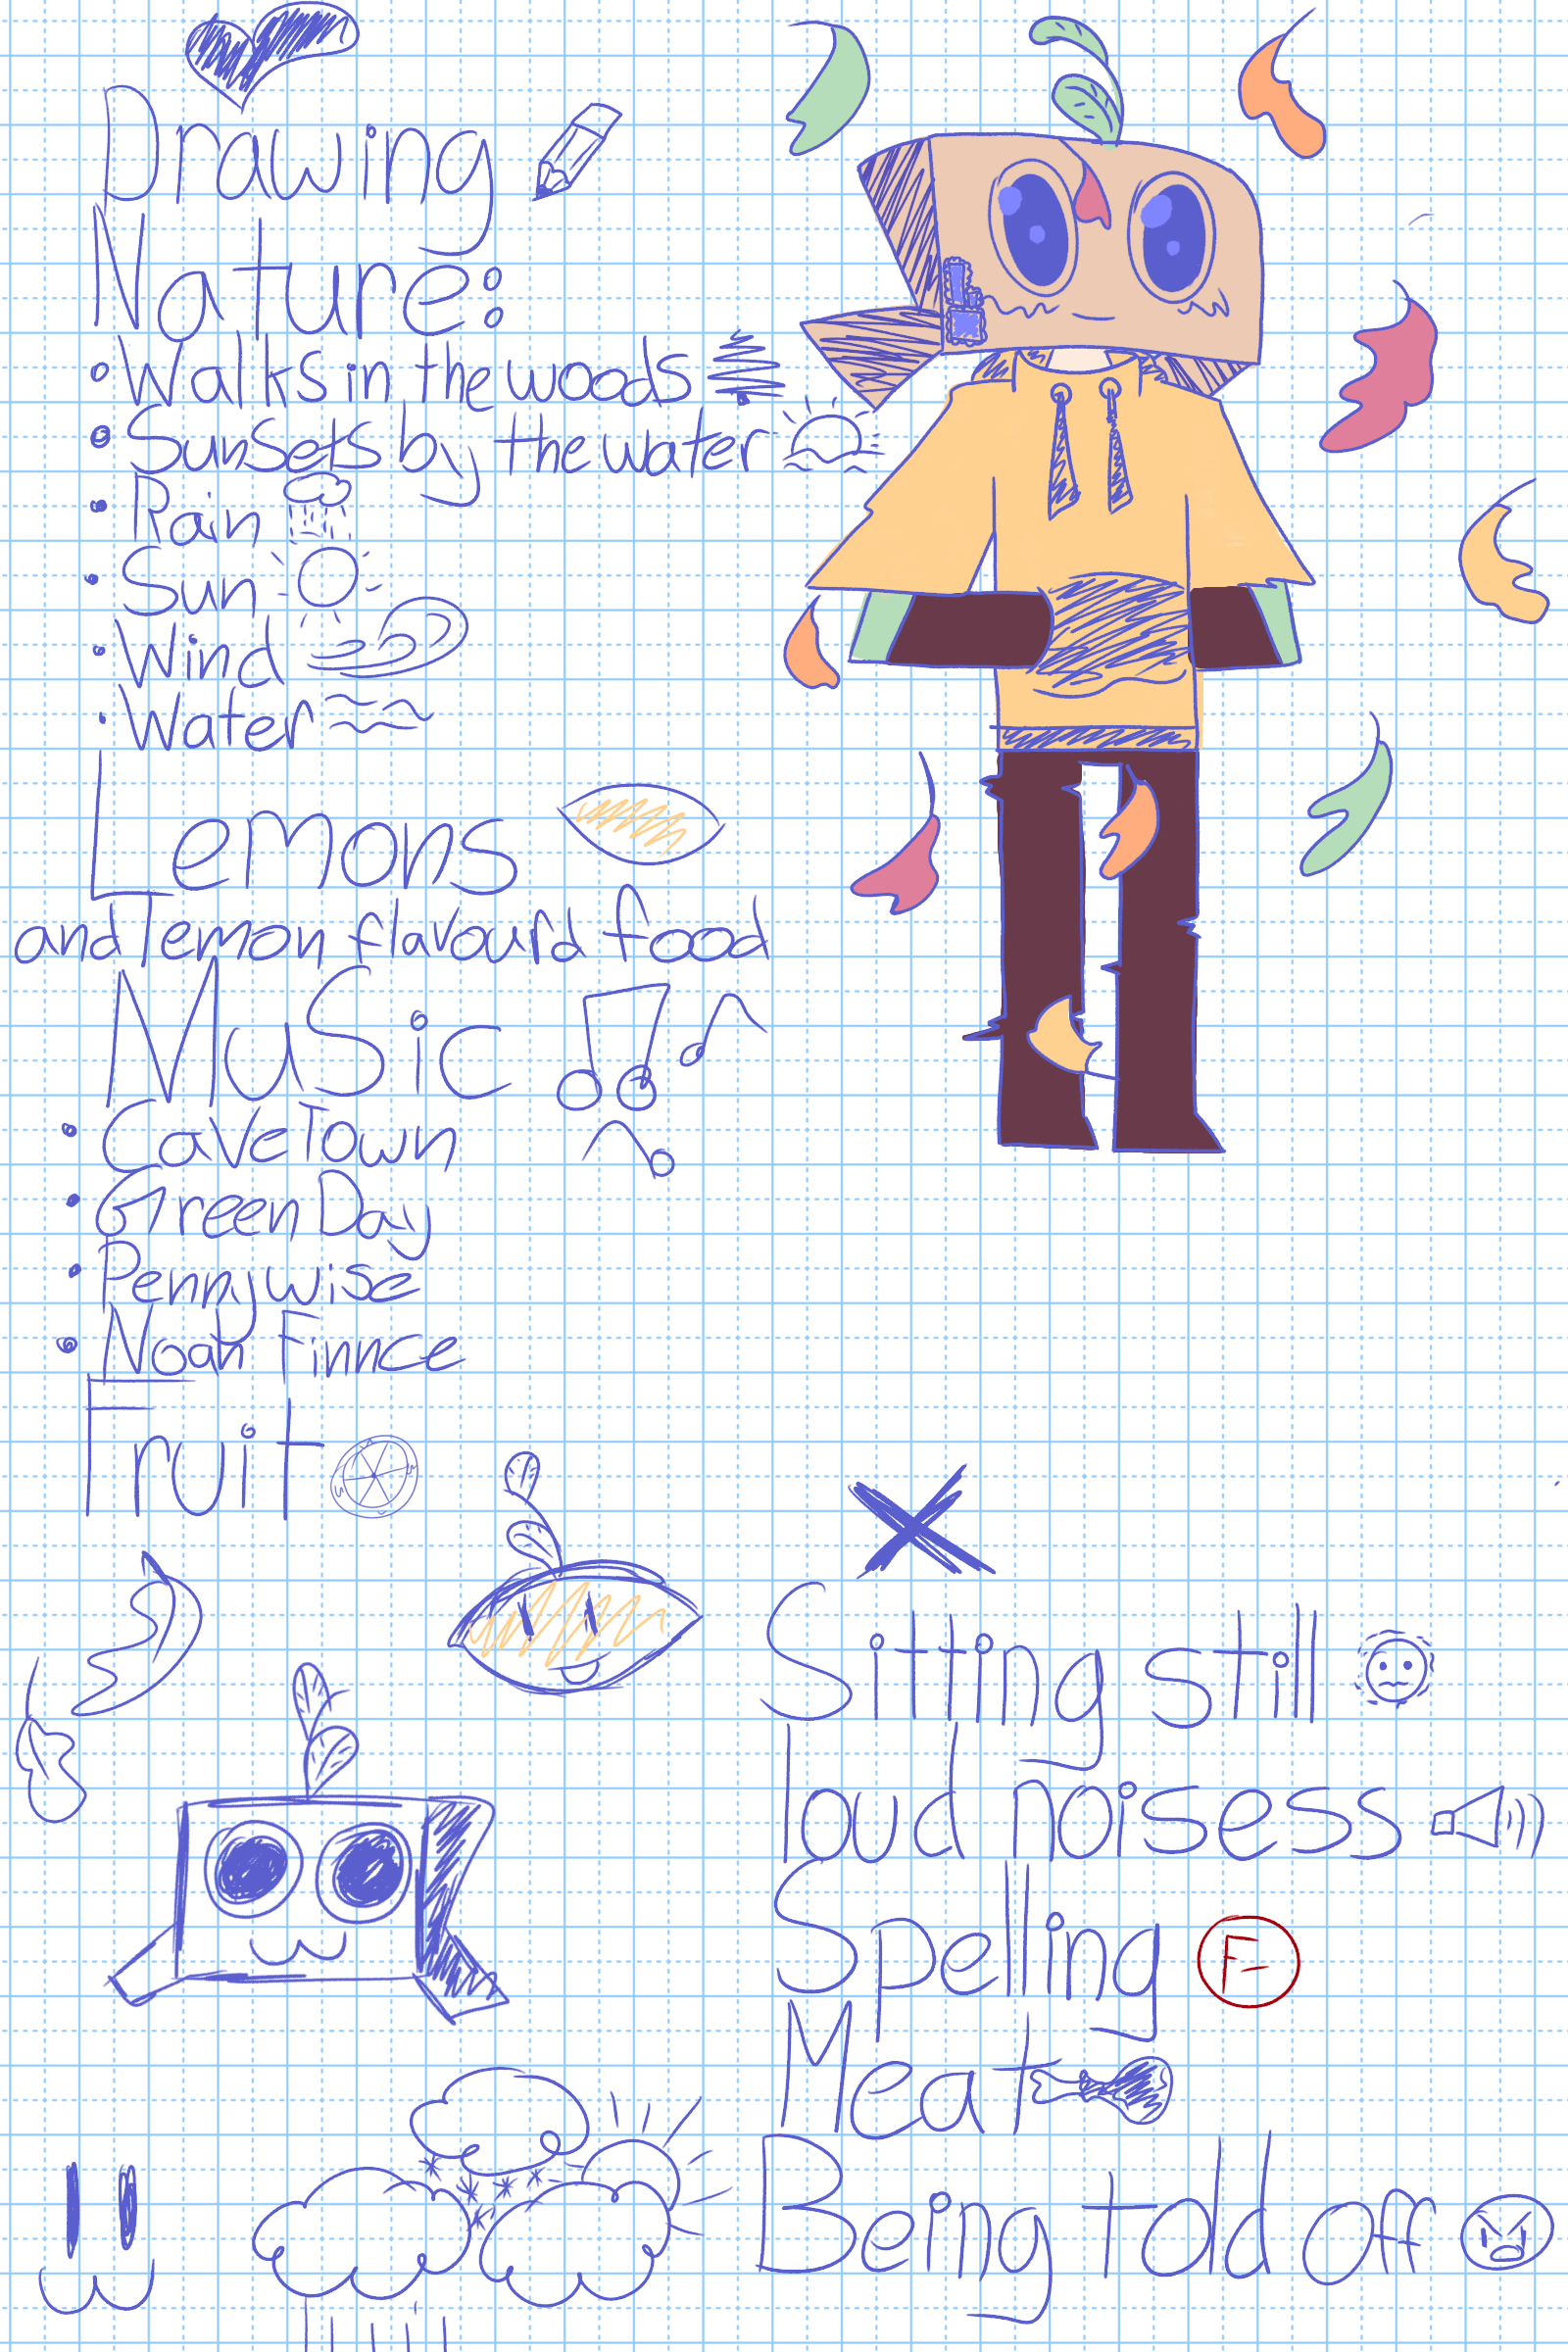 Drawing
Nature:
• Walks in the woods
• Sunsets by the water
• Rain
• Sun
• Wind
• Water
Lemons
and lemon flavourd food
Music
• CaveTown
• Green Day
• Pennywise
• Noah Finnce
Fruit
Sitting still
loud noisess
Spelling F-
Meat
Being told off